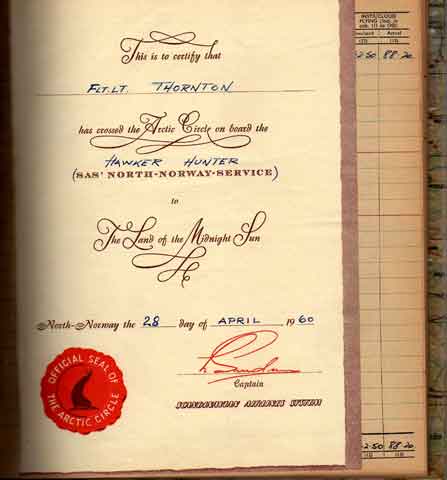 This is to certify that
FLT.LT. THORNTON
has crossed the Arctic Circle on board the
HAWKER HUNTER
(SAS' NORTH-NORWAY-SERVICE)
to
The Land of the Midnight Sun
North-Norway the 28 day of APRIL 1960
Captain
SCANDINAVIAN AIRLINES SYSTEM
OFFICIAL SEAL OF
THE ARCTIC CIRCLE
INSTR/CLOUD
FLYING
(12) (13)
2.50 88.20
2.50 88.20